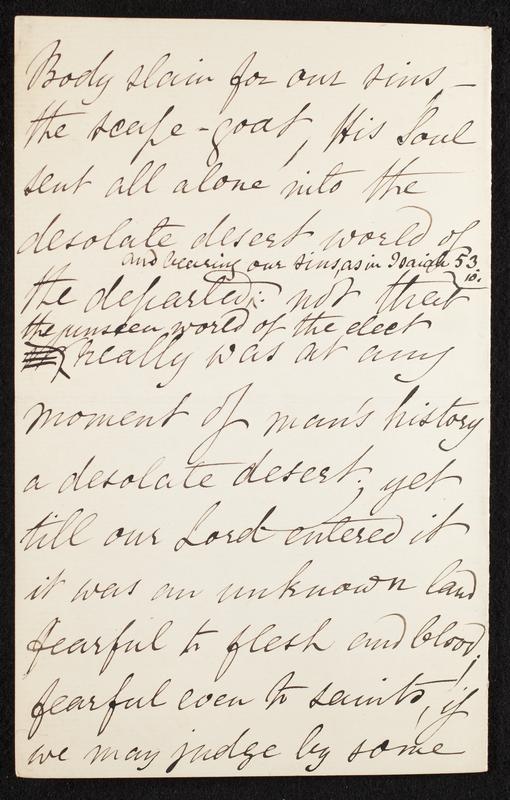 Body slain for our sins, –
the scape-goat, His Soul
sent all alone into the
desolate desert world of
and bearing our sins, as in Isaiah 53
10.
the departed: not that
the unseen world of the elect
really was at any
moment of man's history
a desolate desert; yet
till our Lord entered it
it was an unknown land
fearful to flesh and blood;
fearful even to saints, if
we may judge by some